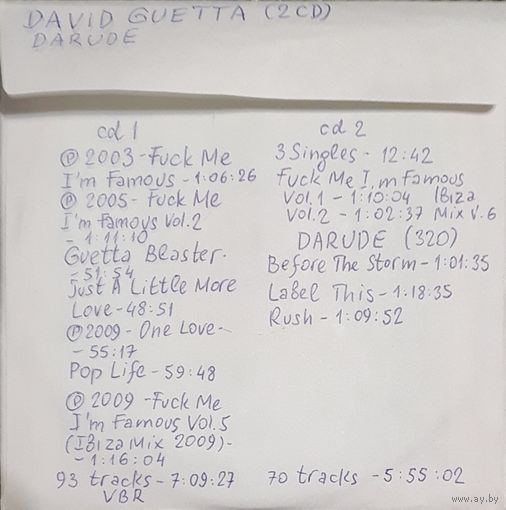 DAVID GUETTA (2CD)
DARUDE
cd 1
Ⓟ 2003 - Fuck Me
I'm Famous - 1:06:26
Ⓟ 2005 - Fuck Me
I'm Famous Vol.2
- 1:11:10
Guetta Blaster -
- 51:54
Just A Little More
Love - 48:51
Ⓟ 2009 - One Love -
- 55:17
Pop Life - 59:48
Ⓟ 2009 - Fuck Me
I'm Famous Vol.5
(IBiza Mix 2009) -
- 1:16:04
93 tracks - 7:09:27
VBR
cd 2
3 Singles - 12:42
Fuck Me I,m Famous
Vol.1 - 1:10:04 IBiza
Vol.2 - 1:02:37 Mix V.6
DARUDE (320)
Before The Storm - 1:01:35
Label This - 1.18:35
Rush - 1:09:52
70 tracks - 5:55:02
www.ay.by